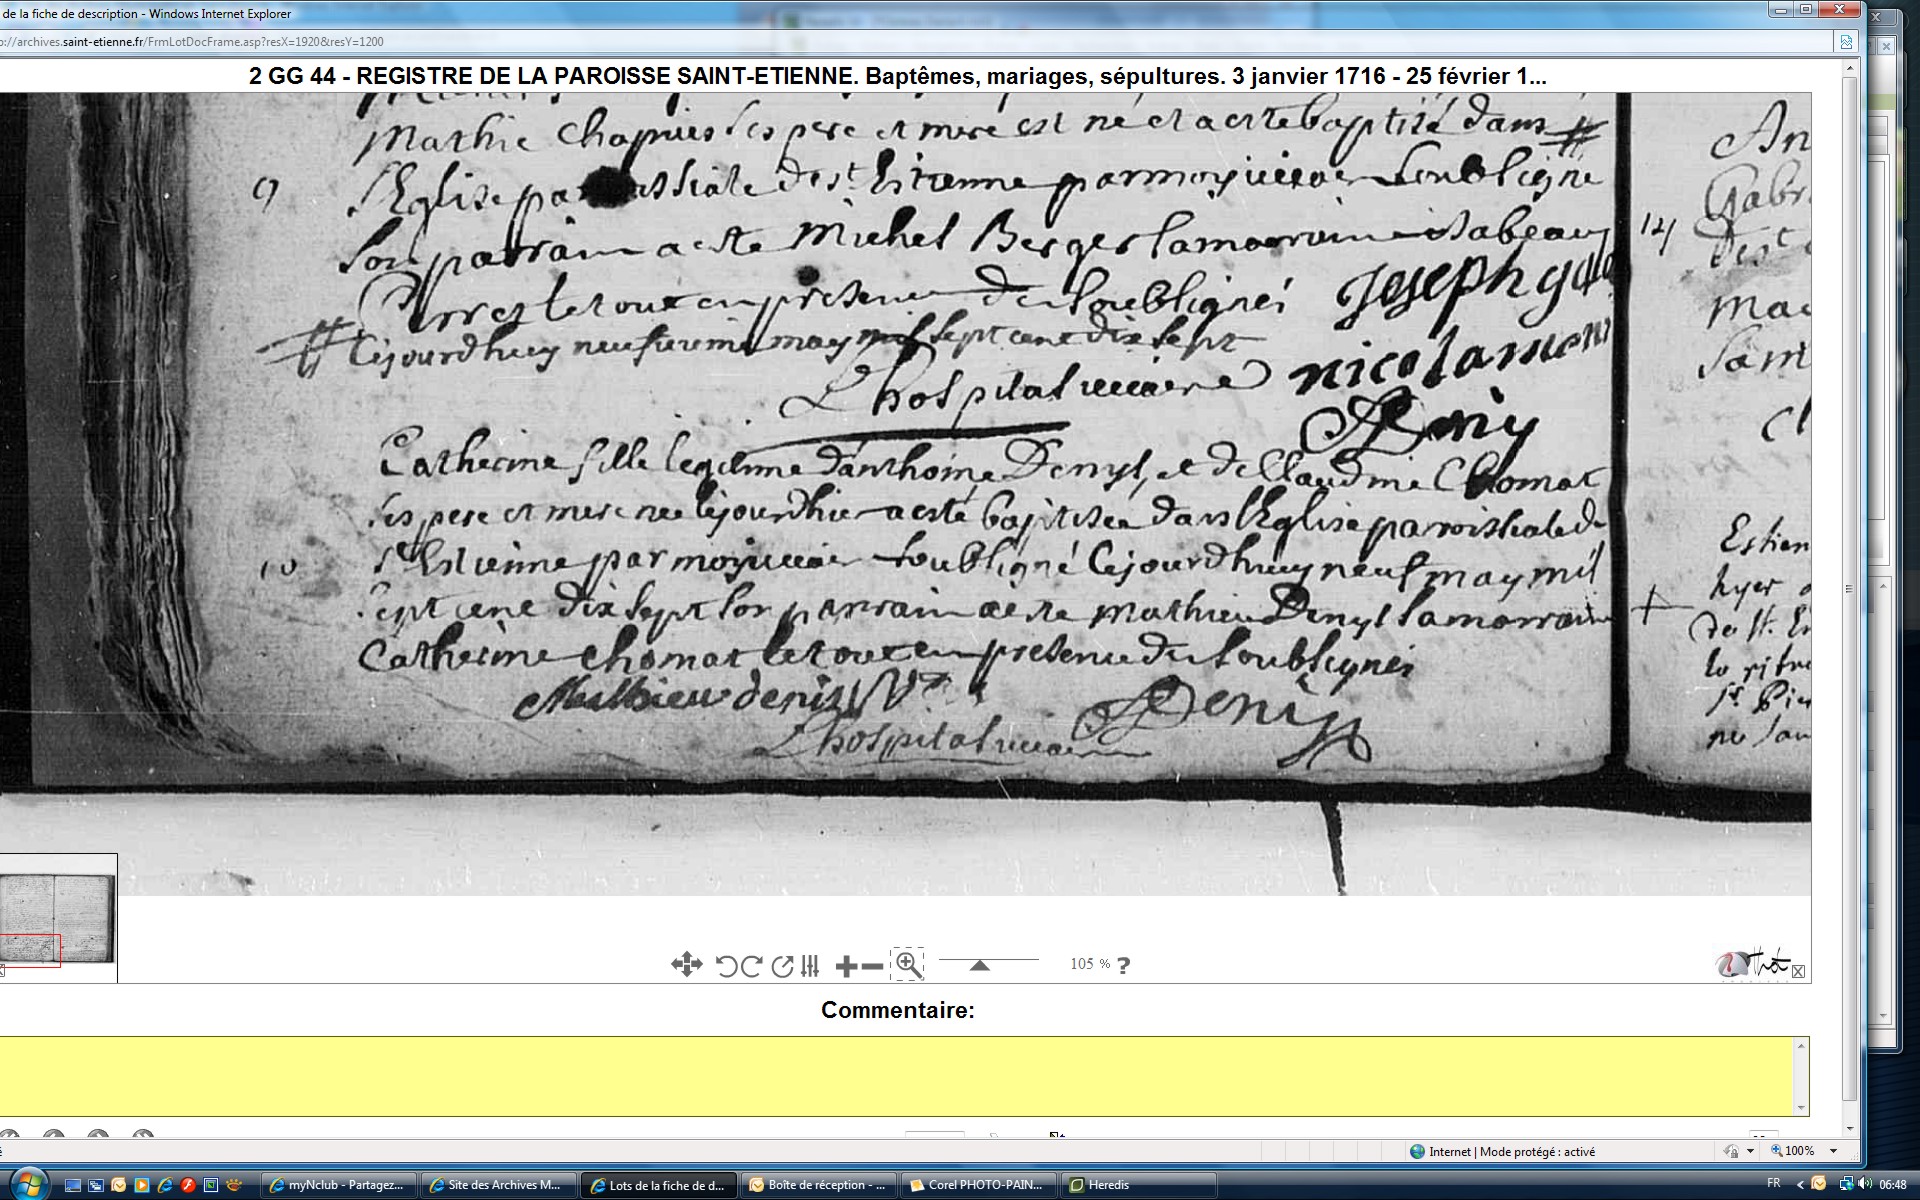 de la fiche de description - Windows Internet Explorer
p://archives.saint-etienne.fr/FrmLotDocFrame.asp?resX=1920&resY=1200
2 GG 44 - REGISTRE DE LA PAROISSE SAINT-ETIENNE. Baptêmes, mariages, sépultures. 3 janvier 1716 - 25 février 1...
Mathie Chapuies ses pere et mere est né et a esté baptisé dans #
9 l'Eglise paroissiale de st Estienne par moy vicaire soubsigné
son parrain a esté Michel Berger la marraine isabeau
Perret le tout en presence des soubsignés Joseph
# Cejourdhuy neufvieme may mil sept cent dix sept
Lhospital vicaire nicolas
Denis
Catherine fille legitime d'anthoine Denys, et de Claudine Chomat
ses pere et mere née cejourdhier a esté baptisée dans l'Eglise paroissiale de
10 st Estienne par moy vicaire soubsigné Cejourdhuy neuf may mil
sept cent dix sept son parrain a esté Mathieu Denys la marraine
Catherine Chomat le tout en presence des soubsignés
Mathieu denis
Denis
Lhospital vicaire
An
Gabr
12
de st
Mac
Sam
Cl
Estien
hyer
+ de st. Es
st. Pier
105 % ?
Commentaire:
Internet | Mode protégé : activé
100%
myNclub - Partagez...
Site des Archives M...
Lots de la fiche de d...
Boîte de réception - ...
Corel PHOTO-PAIN...
Heredis
FR
06:48